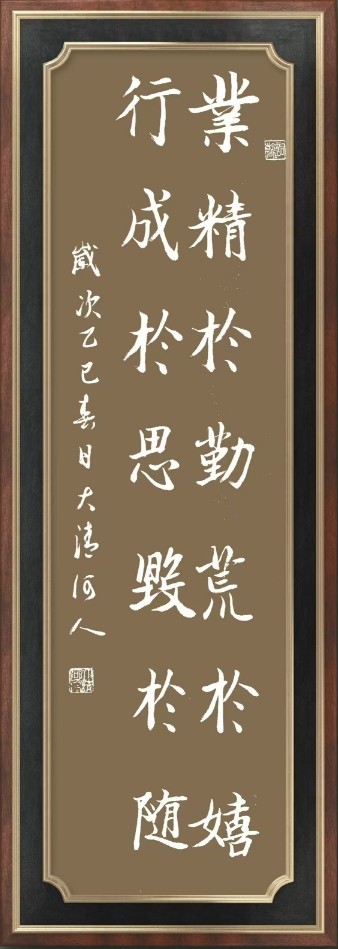 業精於勤荒於嬉
行成於思毀於随
歲次乙巳春日大清河人